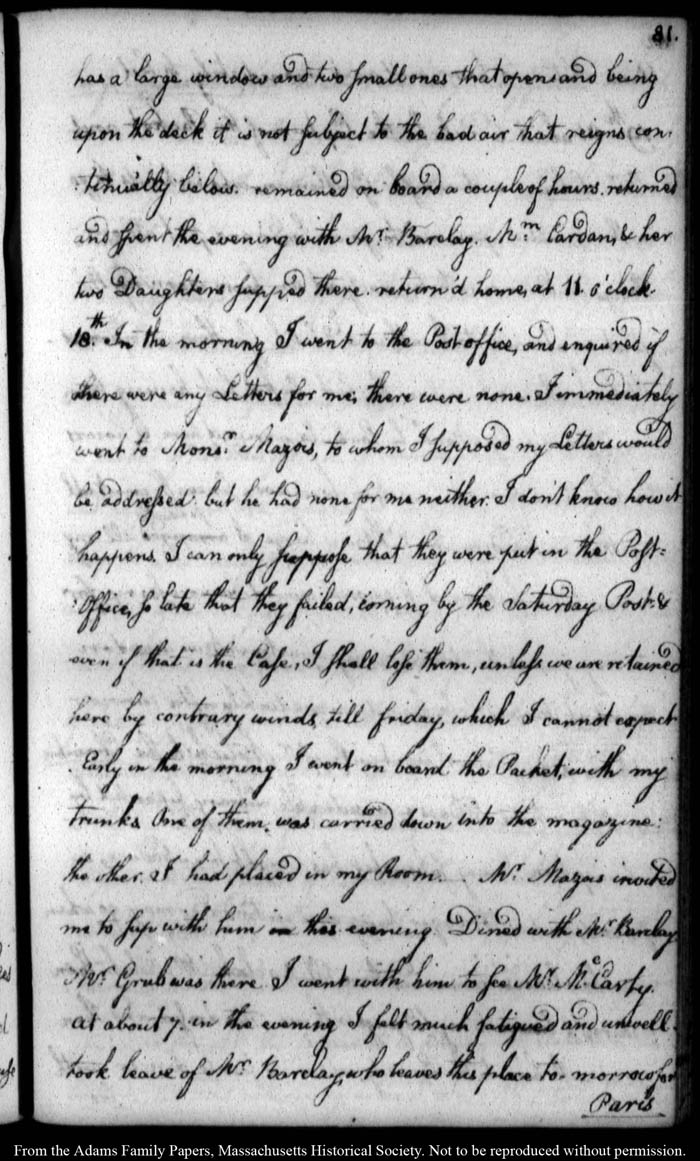 81.
has a large window and two small ones that opens and being
upon the deck it is not subject to the bad air that reigns con-
:tinually, below. remained on board a couple of hours. returned
and spent the evening with Mr. Barclay. Mm. Cardan, & her
two Daughters supped there. return'd home, at 11. o'clock.
18.th In the morning I went to the Post office, and enquired if
there were any Letters for me; there were none. I immediately
went to Monsr. Mazois, to whom I supposed my Letters would
be addressed. but he had none for me neither. I don't know how it
happens. I can only suppose that they were put in the Post=
:Office, so late that they failed, coming by the Saturday Post. &
even if that is the Case, I shall lose them, unless we are retained
here by contrary winds, till friday, which I cannot expect
. Early in the morning I went on board the Packet, with my
trunks. One of them, was carried down into the magazine:
the other. I had placed in my Room. . Mr. Mazois invited
me to sup with him this evening. Dined with Mr. Barclay
Mr. Grub was there. I went with him to see Mr. Mc.Carty.
at about 7. in the evening I felt much fatigued and unwell.
took leave of Mr. Barclay, who leaves this place to-morrow for
Paris
From the Adams Family Papers, Massachusetts Historical Society. Not to be reproduced without permission.